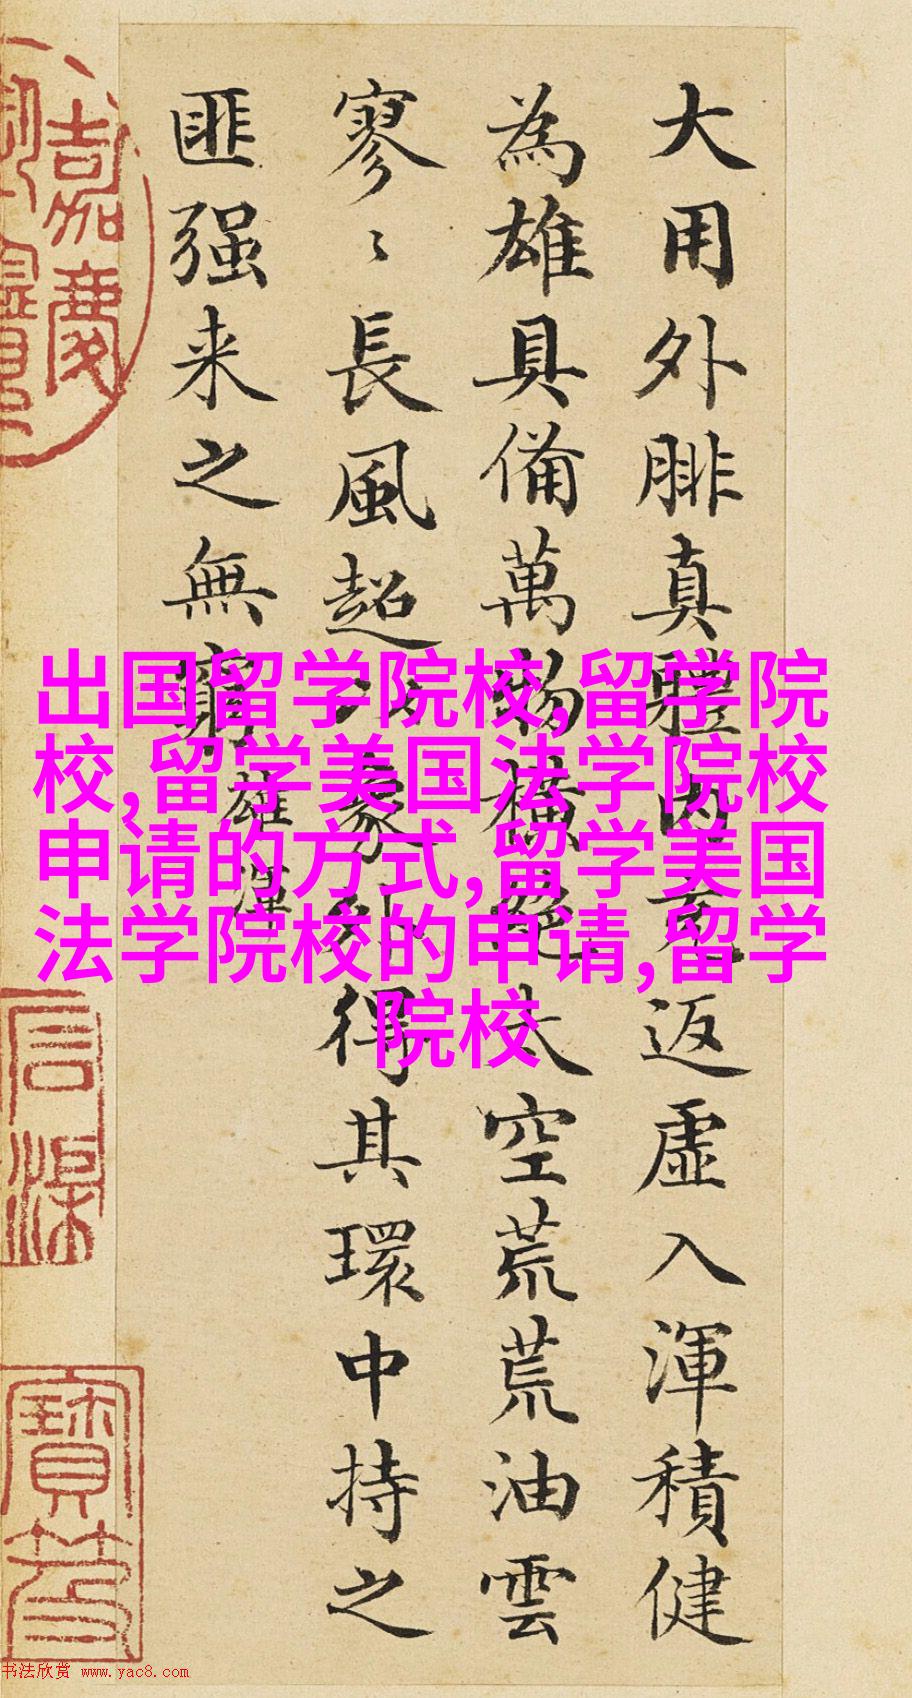 大用外腓真體内充返虛入渾積健
為雄具備萬物橫絕太空荒荒油雲
寥〻長風超以象外得其環中持之
匪强来之無窮
雄渾
嘉慶
出国留学院校,留学院
校,留学美国法学院校
申请的方式,留学美国
法学院校的申请,留学
院校
书法欣赏 www.yac8.com